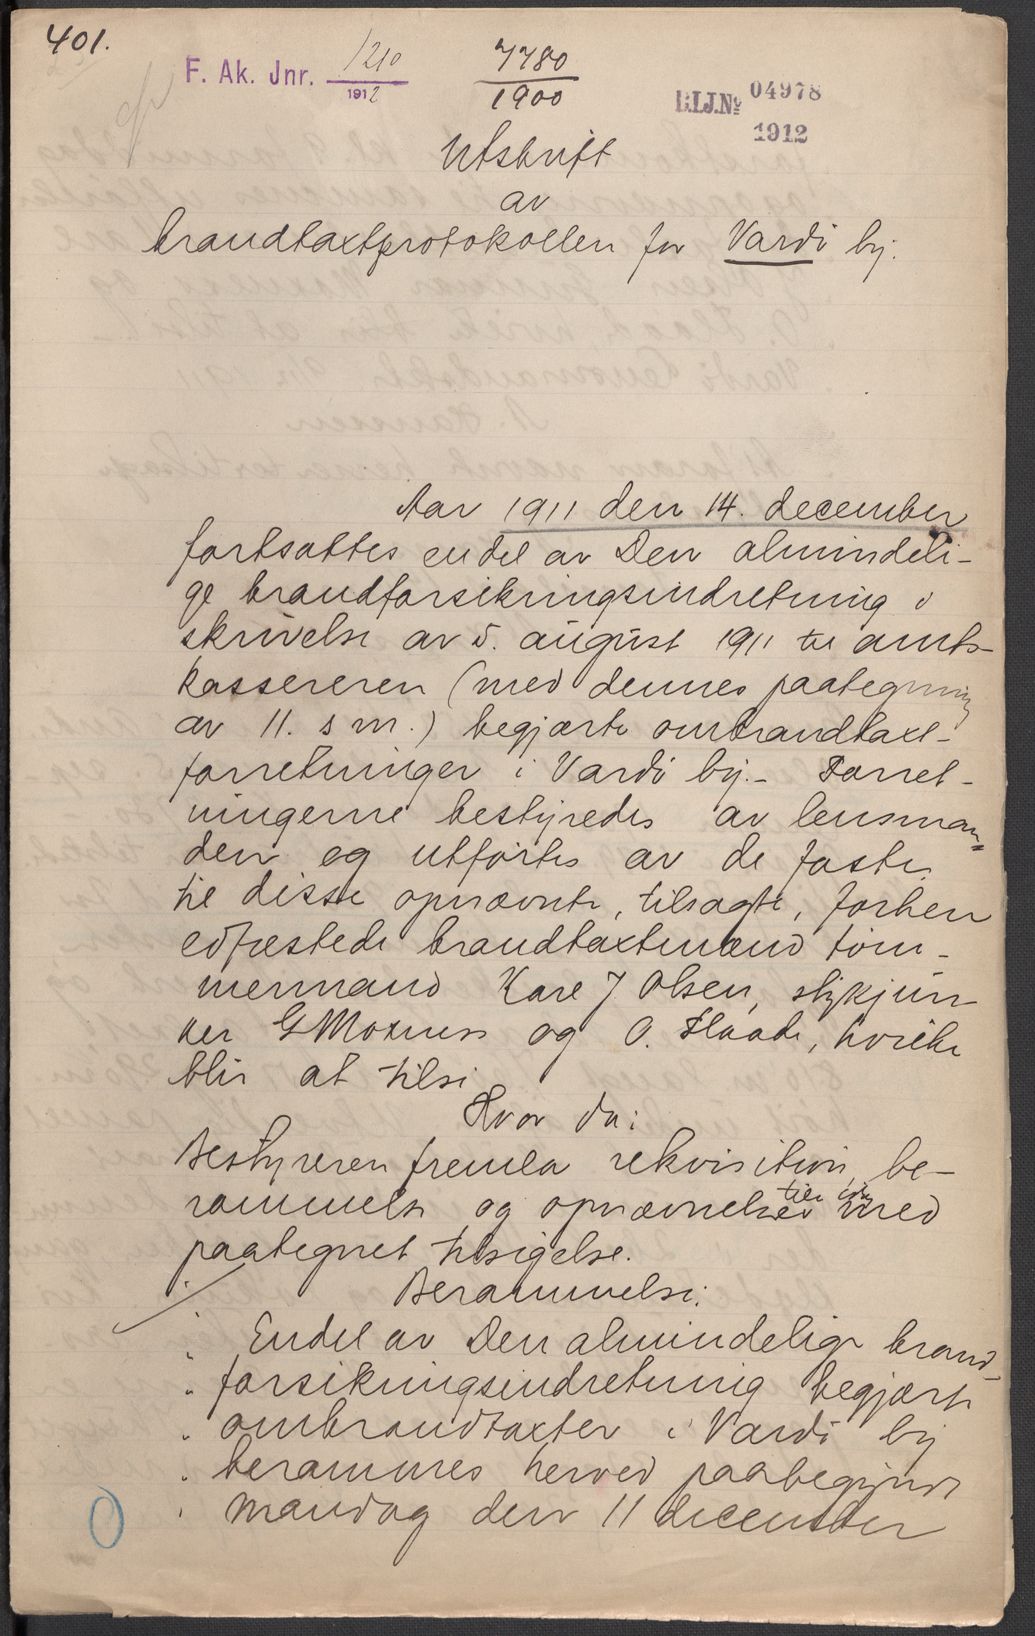 401.
F. Ak. Jnr. 1210
1912
7780
1900
BLJ.No 04978
1912
Utskrift
av
brandtaxtprotokollen for Vardö by.
Aar 1911 den 14. december
fortsattes endel av Den almindeli-
ge brandforsikringsindretning i
skrivelse av 5. august 1911 til amts-
kassereren (med dennes paategning
av 11. s m.) begjærte ombrandtaxt-
forretninger i Vardö by.- Forret-
ningerne bestyredes av lensman-
den og utförtes av de faste
til disse opnævnte, tilsagte, forhen
edfæstede brandtaxtmænd töm-
mermand Kare J Olsen, stykjun-
ker G Moxness og O. Flaade, hvilke
blir at tilsi
Hvor da:
Bestyreren fremla rekvisition, be-
rammelse og opnævnelse med
paategnet tilsigelse.
Berammelse:
Endel av Den almindelige brand-
forsikringsindretning begjærte
ombrandtaxter i Vardö by
berammes herved paabegyndt
mandag den 11 december